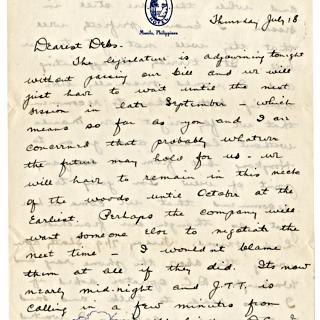 Manila, Philippines
Thursday July 18
Dearest Debs.
The legislature is adjourning tonight
without passing our bill and we will
just have to wait until the next
session in late September - which
means so far as you and I are
concerned that probably whatever
the future may hold for us - we
will have to remain in this neck
of the woods until October at the
Earliest. Perhaps the company will
want someone else to negotiate the
next time - I wouldn't blame
them at all if they did. Its now
nearly mid-night and J.T.T. is
calling in a few minutes from